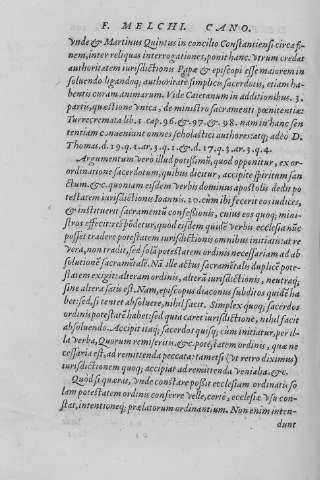 F. MELCHI. CANO.
Vnde & Martinus Quintus in concilio Constantiensi circa fi-
nem, inter reliquas interrogationes, ponit hanc. Vtrum credat
authoritatem iurisdictionis Papæ & episcopi esse maiorem in
soluendo ligandoq; authoritate simplicis sacerdotis, etiam ha-
bentis curam animarum. Vide Caietanum in additionibus. 3.
parte, quæstione vnica, de ministro sacramenti pœnitentiæ:
Turrecremata lib. 1. cap. 96. & 97. & 98. nam in hanc sen-
tentiam conueniunt omnes scholastici authores atq; adeò D.
Thomas. d. 19. q. 1. ar. 3. q. 1. & d. 17. q. 3. ar. 3. q. 4.
Argumentum vero illud potissimũ, quod opponitur, ex or-
ordinatione sacerdotum, quibus dicitur, accipite spiritum san
ctum. &c. quoniam eisdem verbis dominus apostolis dedit po
testatem iurisdictionis Ioannis. 20. cum ibi fecerit eos iudices,
& instituerit sacramentũ confessionis, cuius eos quoq; mini-
stros effecit: respõdetur, quod eisdem quidẽ verbis ecclesia nũc
posset tradere potestatem iurisdictionis omnibus initiatis: at re
vera, non tradit, sed solã potestatem ordinis necessariam ad ab
solutionẽ sacramẽtalẽ. Nã ille actus sacramẽtalis duplicẽ pote-
statem exigit: alteram ordinis, alterã iurisdictionis, neutraq;
sine altera satis est. Nam, episcopus diaconus subditos quidẽ ha
bet: sed, si tentet absoluere, nihil facit. Simplex quoq; sacerdos
ordinis potestatẽ habet: sed quia caret iurisdictione, nihil facit
absoluendo. Accipit itaq; sacerdos quisq; cùm initiatur, per il-
la verba, Quorum remiseritis, &c. potestatem ordinis, quæ ne
cessaria est, ad remittenda peccata: tametsi (vt retro diximus)
iurisdictionem quoq; accipiat ad remittenda venialia. &c.
Quòd si quæras, vnde constare possit ecclesiam ordinatis so
lam potestatem ordinis conferre velle, certè, ecclesiæ vsu con-
stat, intentioneq; prælatorum ordinantium. Non enim inten-
dunt